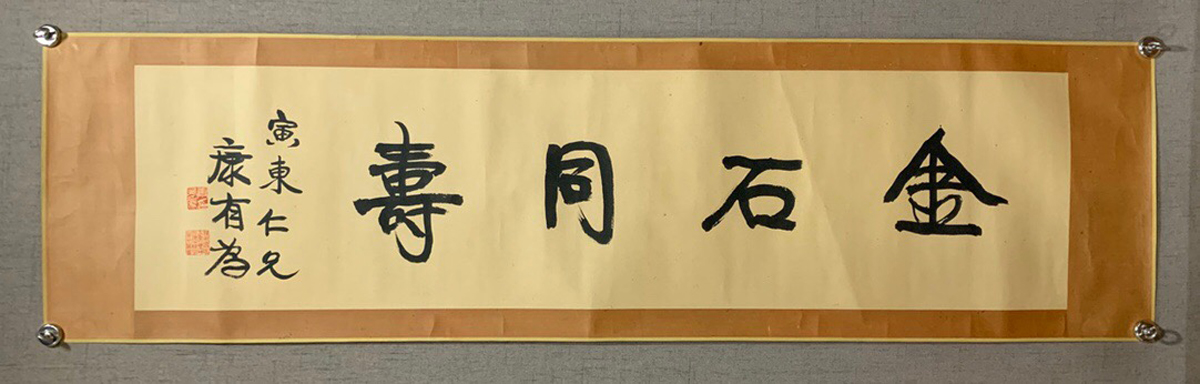 金石同壽
寅東仁兄
康有為